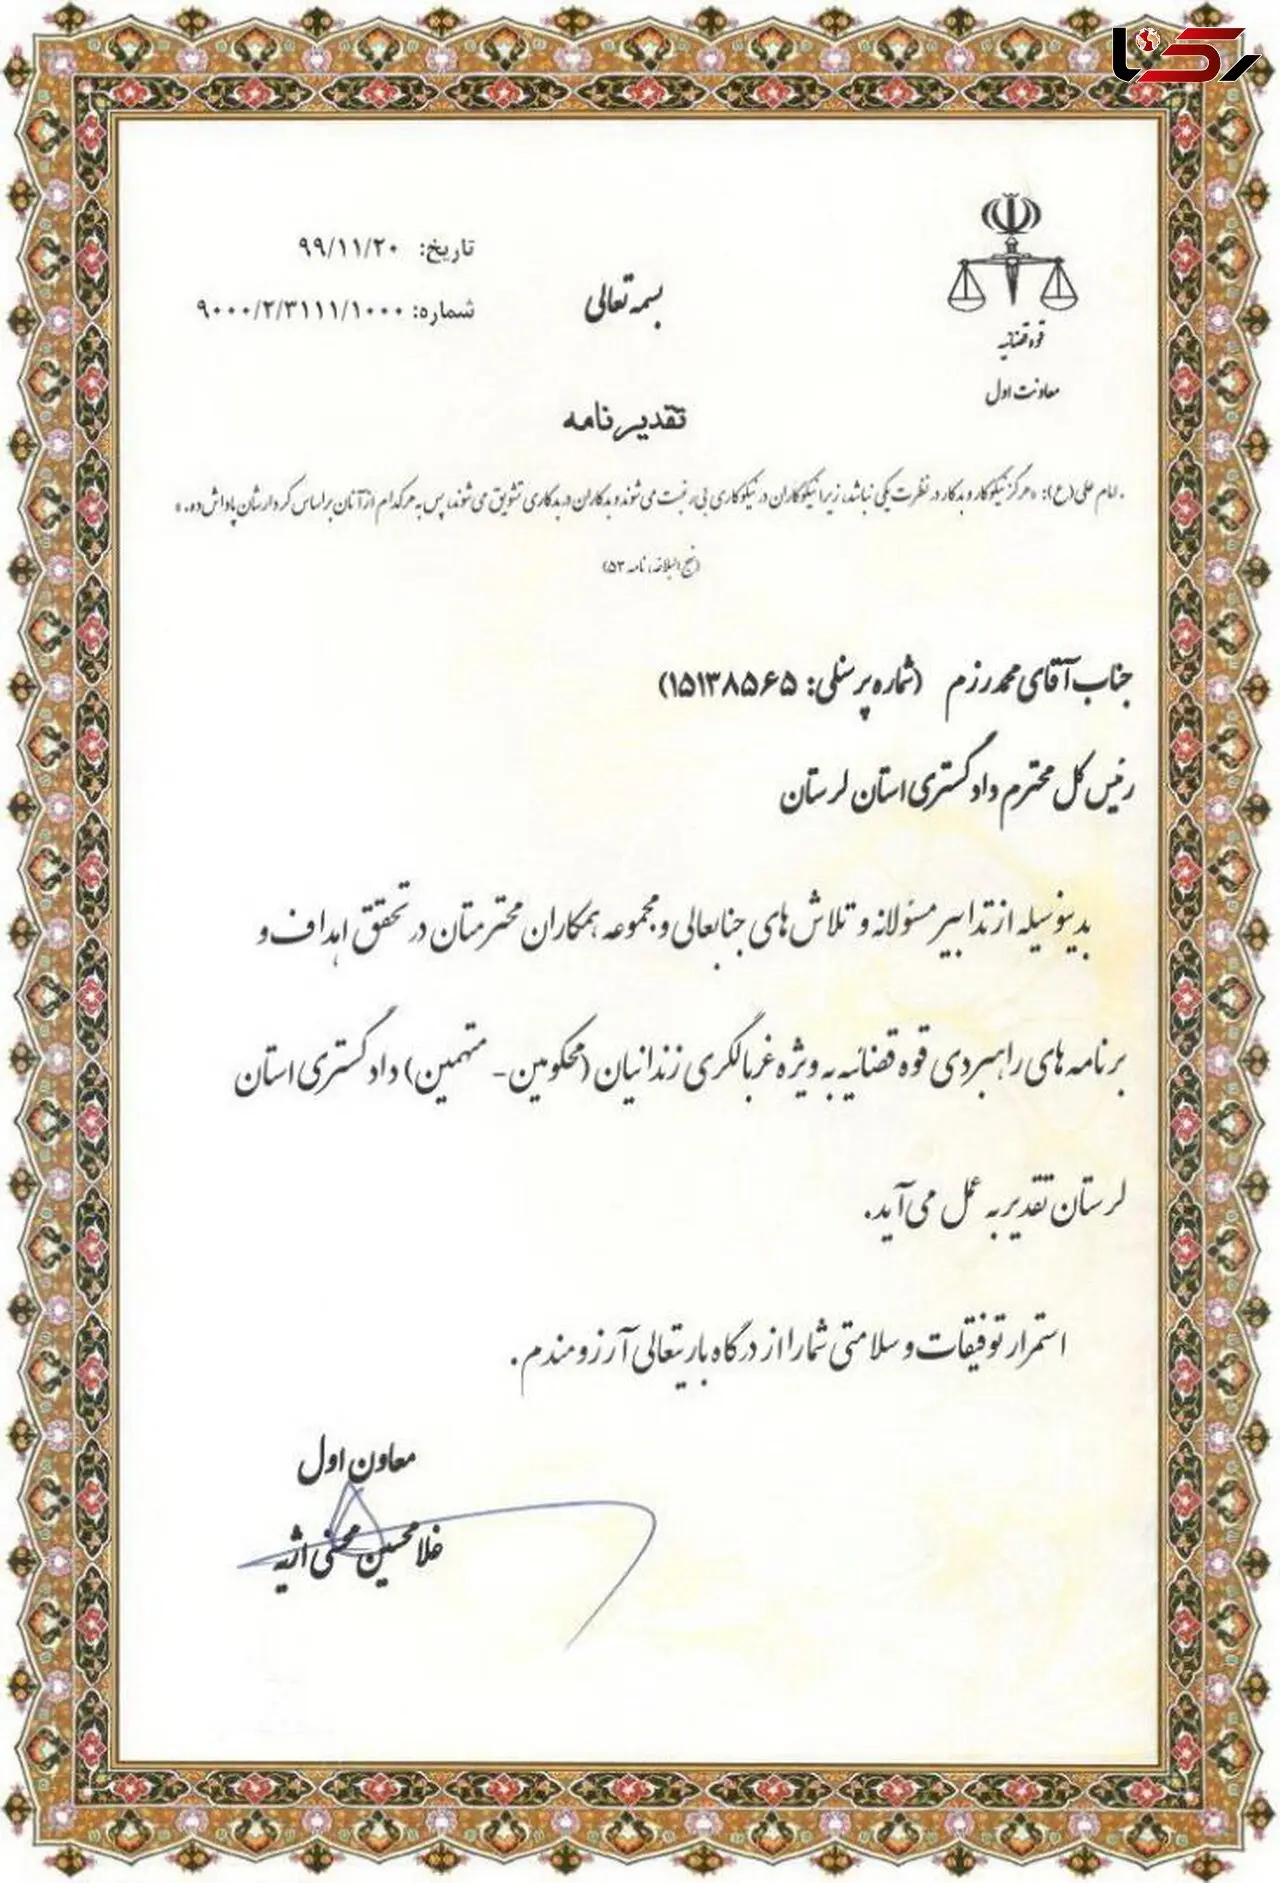 رکنا
تاریخ: ۹۹/۱۱/۲۰
شماره: ۹۰۰۰/۲/۳۱۱۱/۱۰۰۰
بسمه تعالی
قوه قضائیه
معاونت اول
تقدیرنامه
امام علی(ع): «هرگز نیکوکار و بدکار در نظرت یکی نباشد، زیرا نیکوکاران در نیکوکاری بی رغبت می شوند و بدکاران در بدکاری تشویق می شوند، پس به هر کدام از آنان بر اساس کردارشان پاداش ده.»
(نهج البلاغه، نامه ۵۳)
جناب آقای محمد رزم (شماره پرسنلی: ۱۵۱۳۸۵۶۵)
رئیس کل محترم دادگستری استان لرستان
بدینوسیله از تدابیر مسئولانه و تلاش های جنابعالی و مجموعه همکاران محترمتان در تحقق اهداف و
برنامه های راهبردی قوه قضائیه به ویژه غربالگری زندانیان (محکومین - متهمین) دادگستری استان
لرستان تقدیر به عمل می آید.
استمرار توفیقات و سلامتی شما را از درگاه باریتعالی آرزومندم.
معاون اول
غلامحسین محسنی اژیه